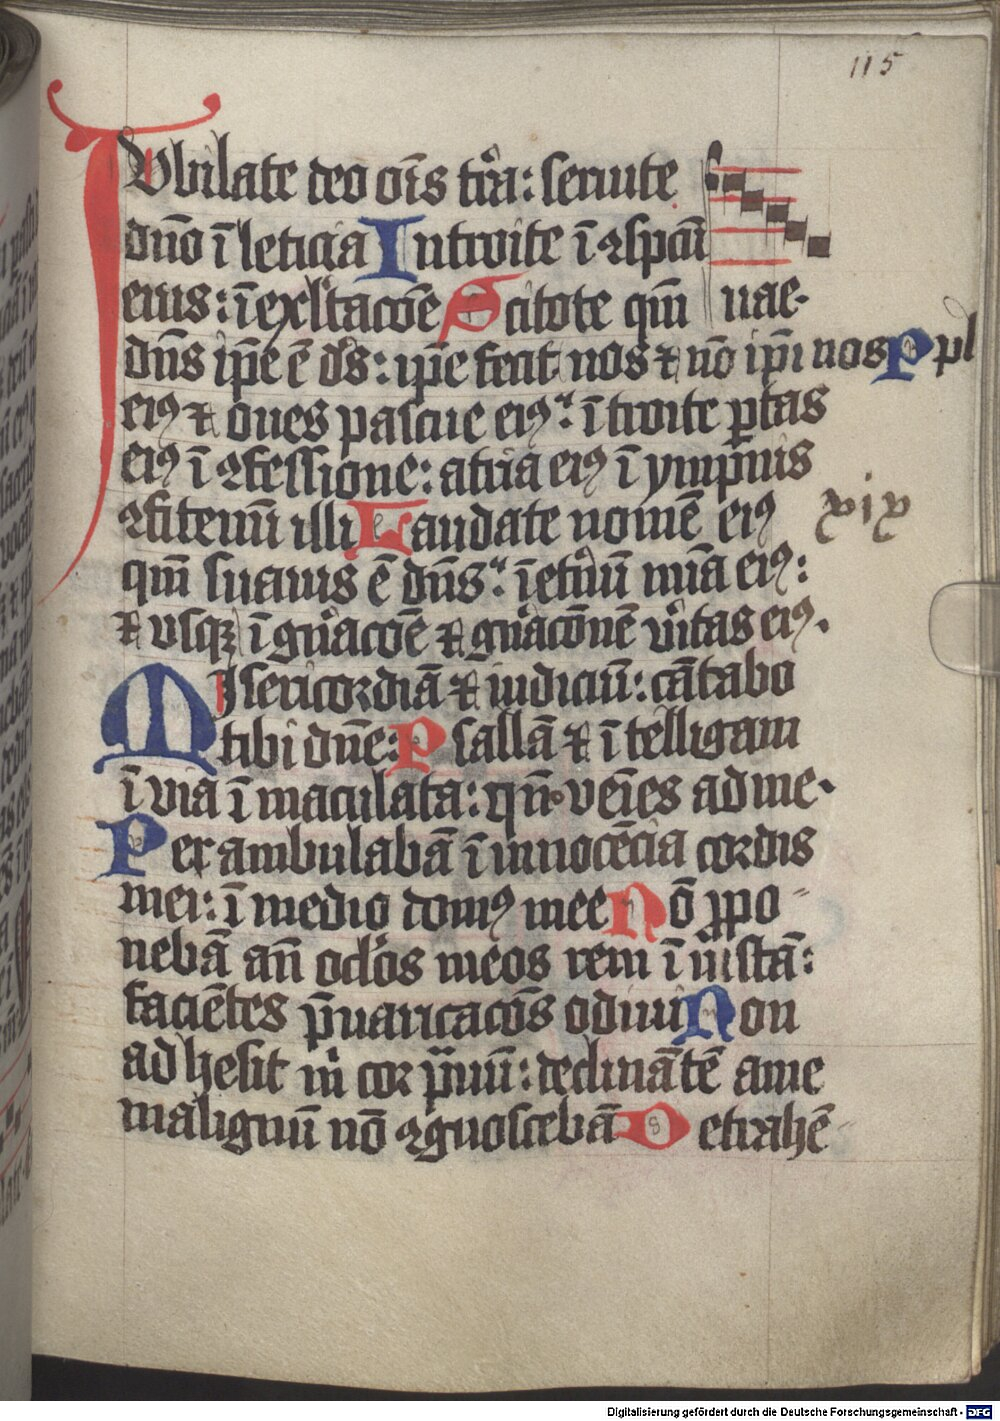 115
Iubilate deo oīs tr̄a: seruite
dn̄o ī leticia Introite ī ꝯspc̄u
eius: ī exl̓tacōe Scitote qm̄
uae.
dn̄s ip̄e ē d̄s: ip̄e fecit nos ⁊ nō ip̄i nos Ppl
eiꝰ ⁊ oues pascue eiꝰ: ītroite ꝑtas
eiꝰ ī ꝯfessione: atria eiꝰ ī ympnis
ꝯfitemī illi Laudate nomē eiꝰ
xix
qm̄ suauis ē dn̄s: ī etn̄ū mīa eiꝰ:
⁊ vsqꝫ ī gn̄acōe ⁊ gn̄acōnē vītas eiꝰ.
Misericordiā ⁊ iudiciū: cātabo
tibi dn̄e: Psallā ⁊ ītelligam
ī via īmaculata: qn̄ veīes ad me.
Perambulabā ī innocēcia cordis
mei: ī medio domꝰ mee Nō ꝓpo
nebā an̄ ocl̓os meos rem īiustā:
faciētes p̄uaricacōs odiui Non
adhesit m̄ cor p̄uū: declināte a me
malignū nō ꝯgnoscebā Detrahē
Digitalisierung gefördert durch die Deutsche Forschungsgemeinschaft - DFG